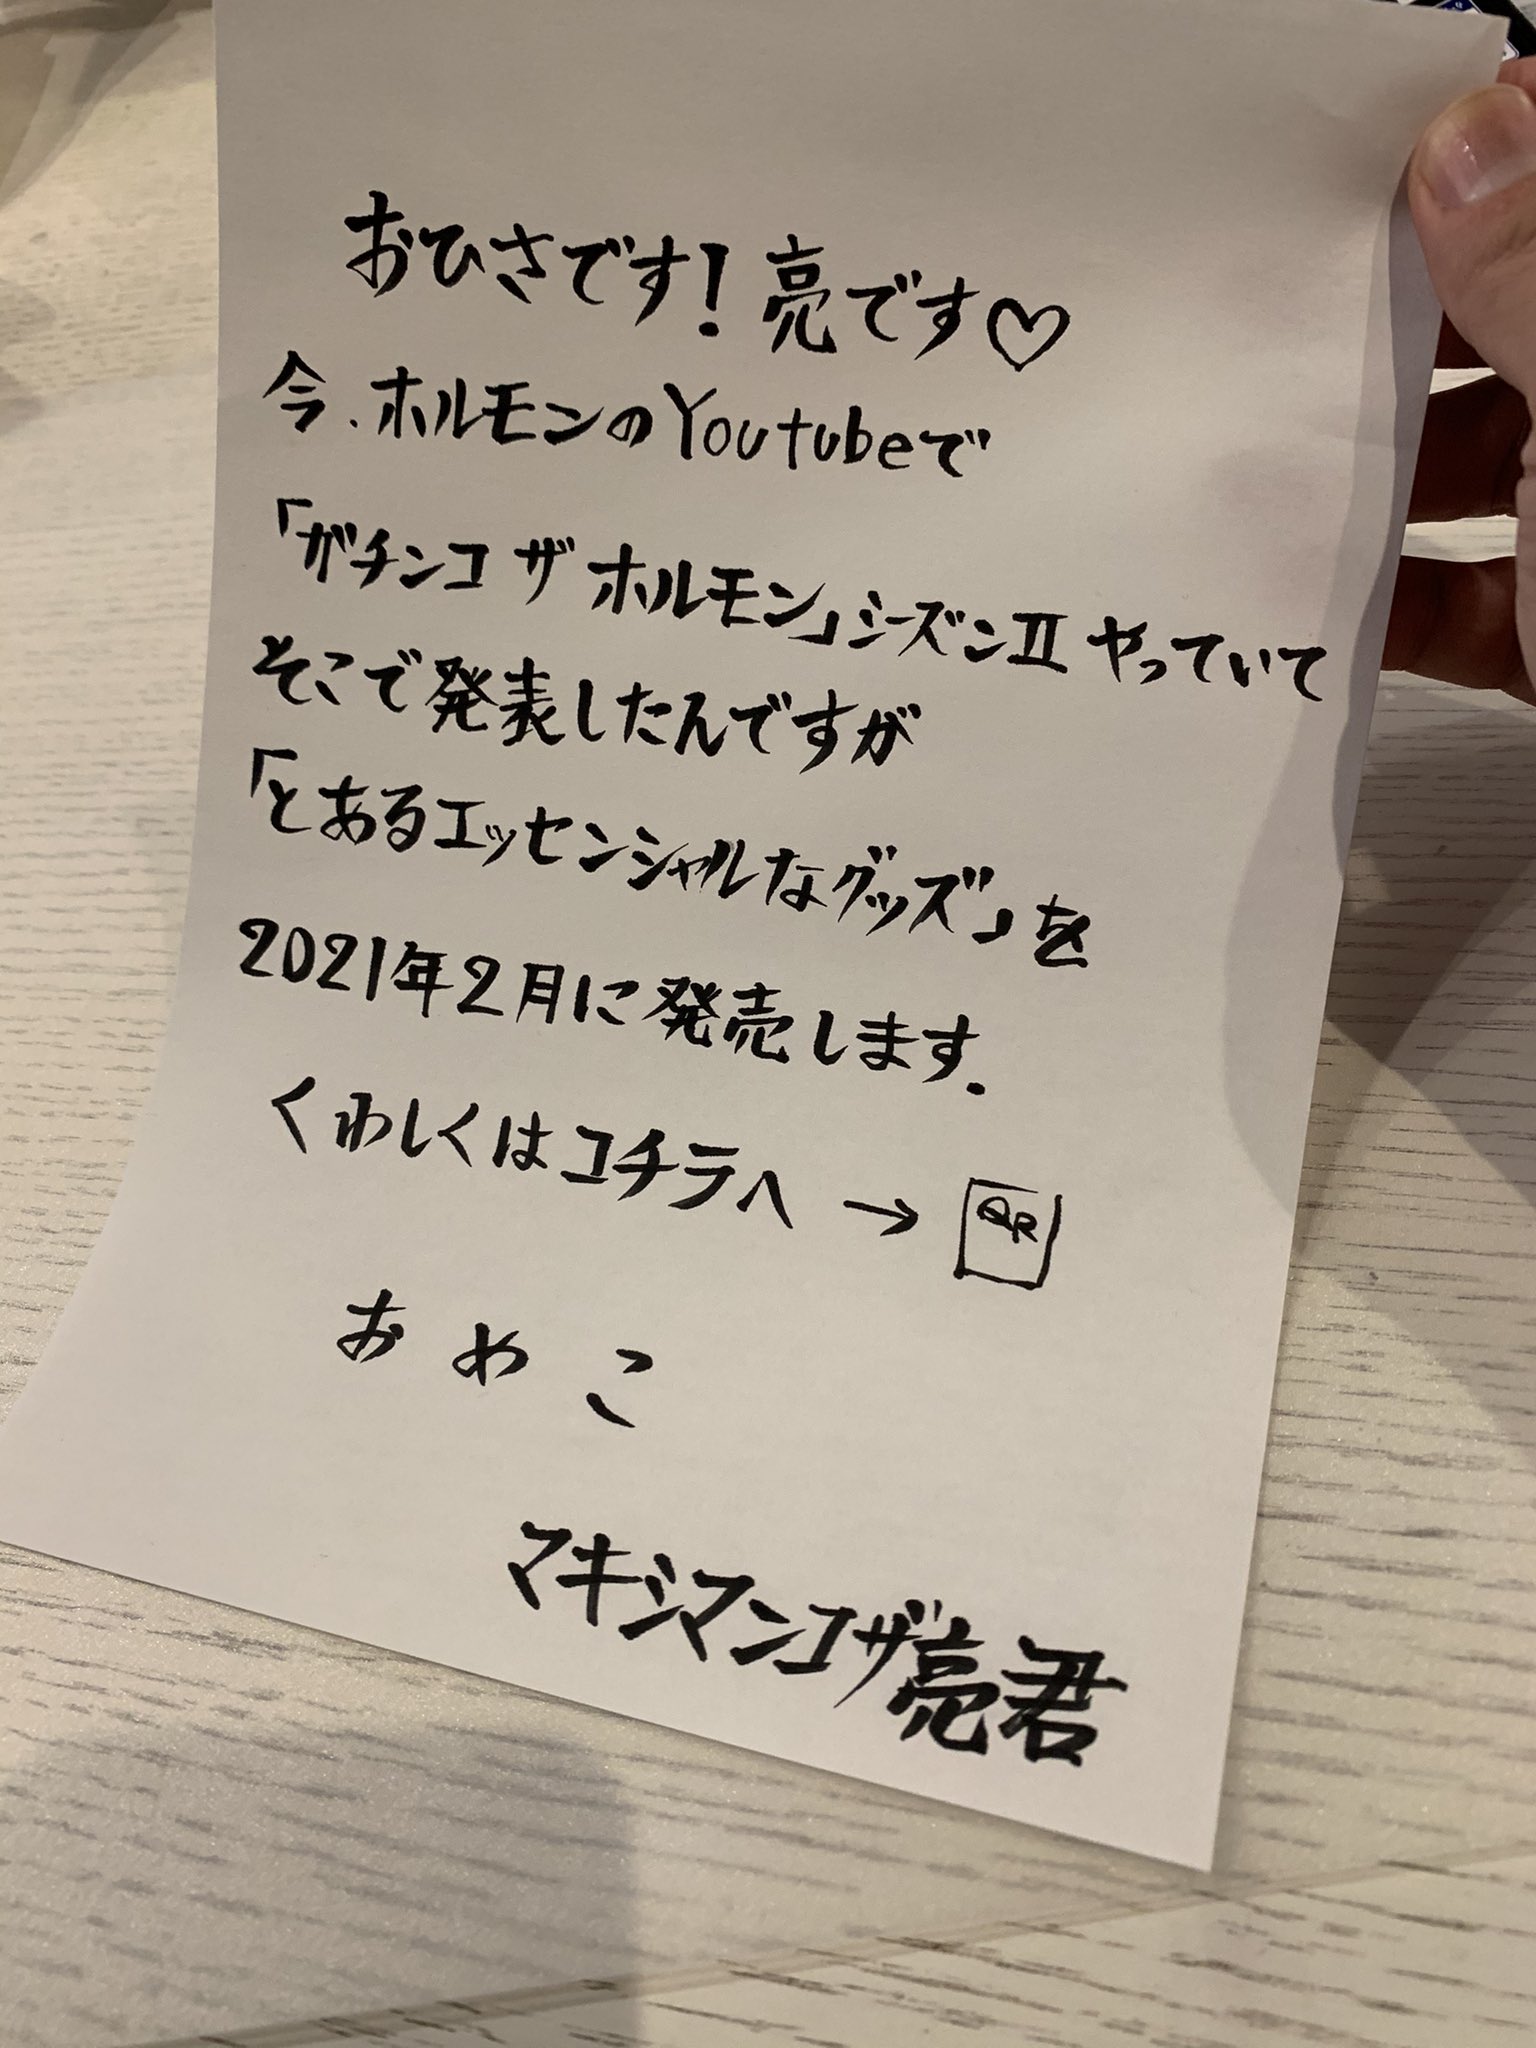 おひさです!亮です♡
今、ホルモンのYoutubeで
「ガチンコ ザ ホルモン」シーズンⅡ やっていて
そこで発表したんですが
「とあるエッセンシャルなグッズ」を
2021年2月に発売します.
くわしくはコチラへ → QR
おめこ
マキシマンコザ亮君